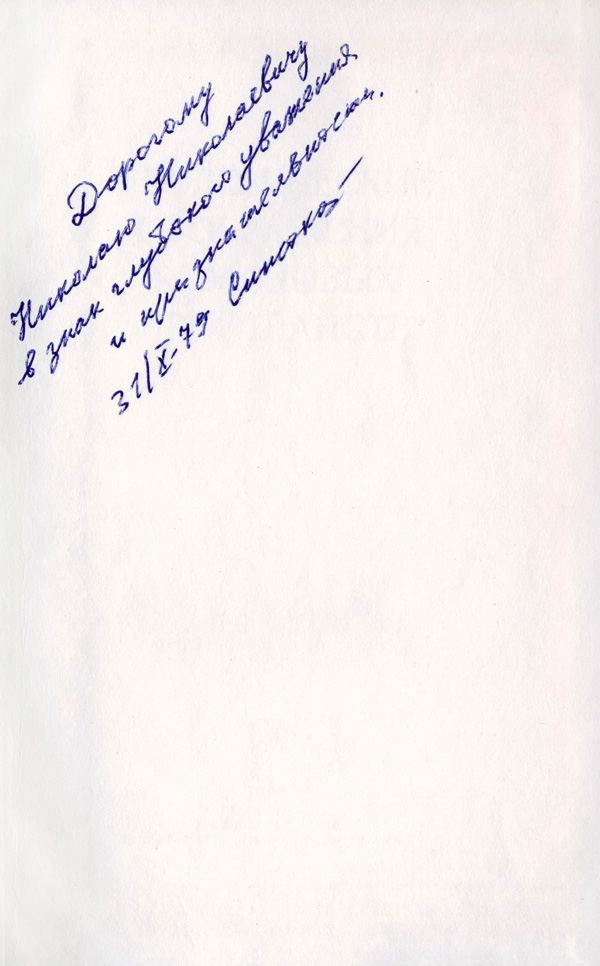 Дорогому
Николаю Николаевичу
в знак глубокого уважения
и признательности.
31/X-79